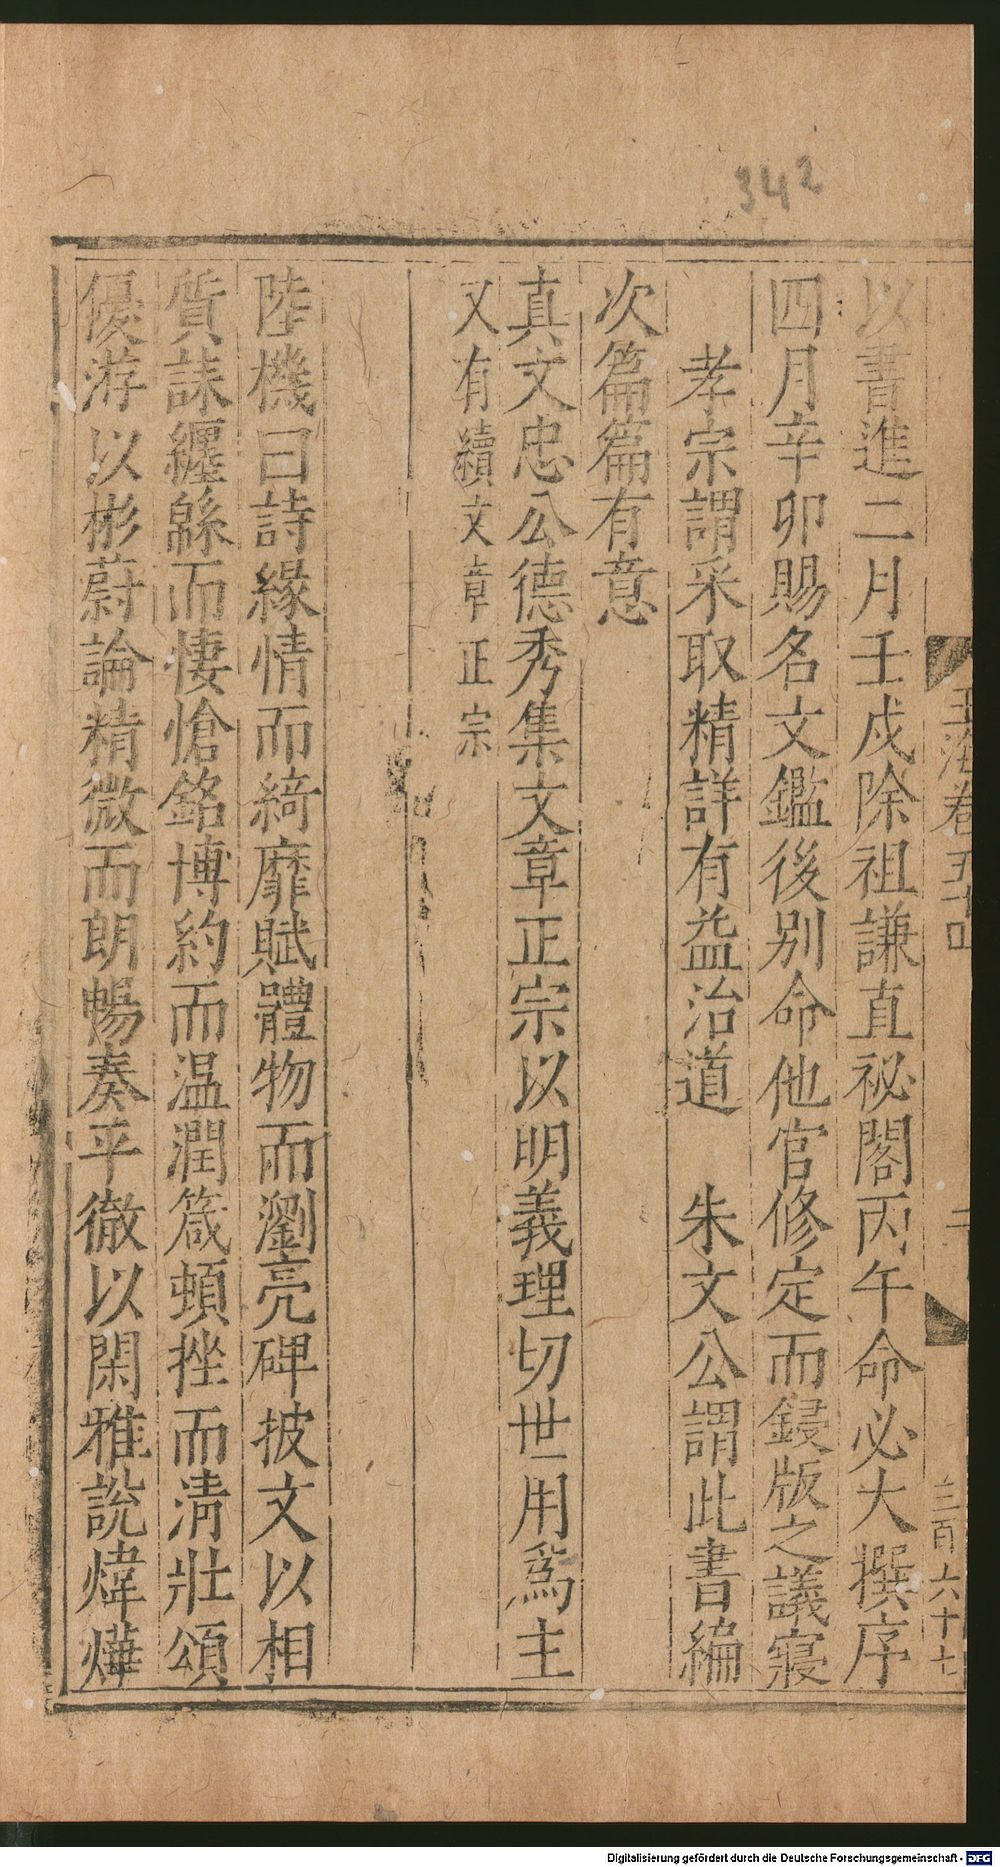 342
玉海卷五十四
二
三百六十七
以書進二月壬戌除祖謙直祕閣丙午命必大撰序
四月辛卯賜名文鑑後別命他官修定而鋟版之議寢
孝宗謂采取精詳有益治道 朱文公謂此書編
次篇篇有意
真文忠公德秀集文章正宗以明義理切世用爲主
又有續文章正宗
陸機曰詩緣情而綺靡賦體物而瀏亮碑披文以相
質誄纏緜而悽愴銘博約而温潤箴頓挫而清壯頌
優游以彬蔚論精微而朗暢奏平徹以閑雅說煒燁
Digitalisierung gefördert durch die Deutsche Forschungsgemeinschaft - DFG